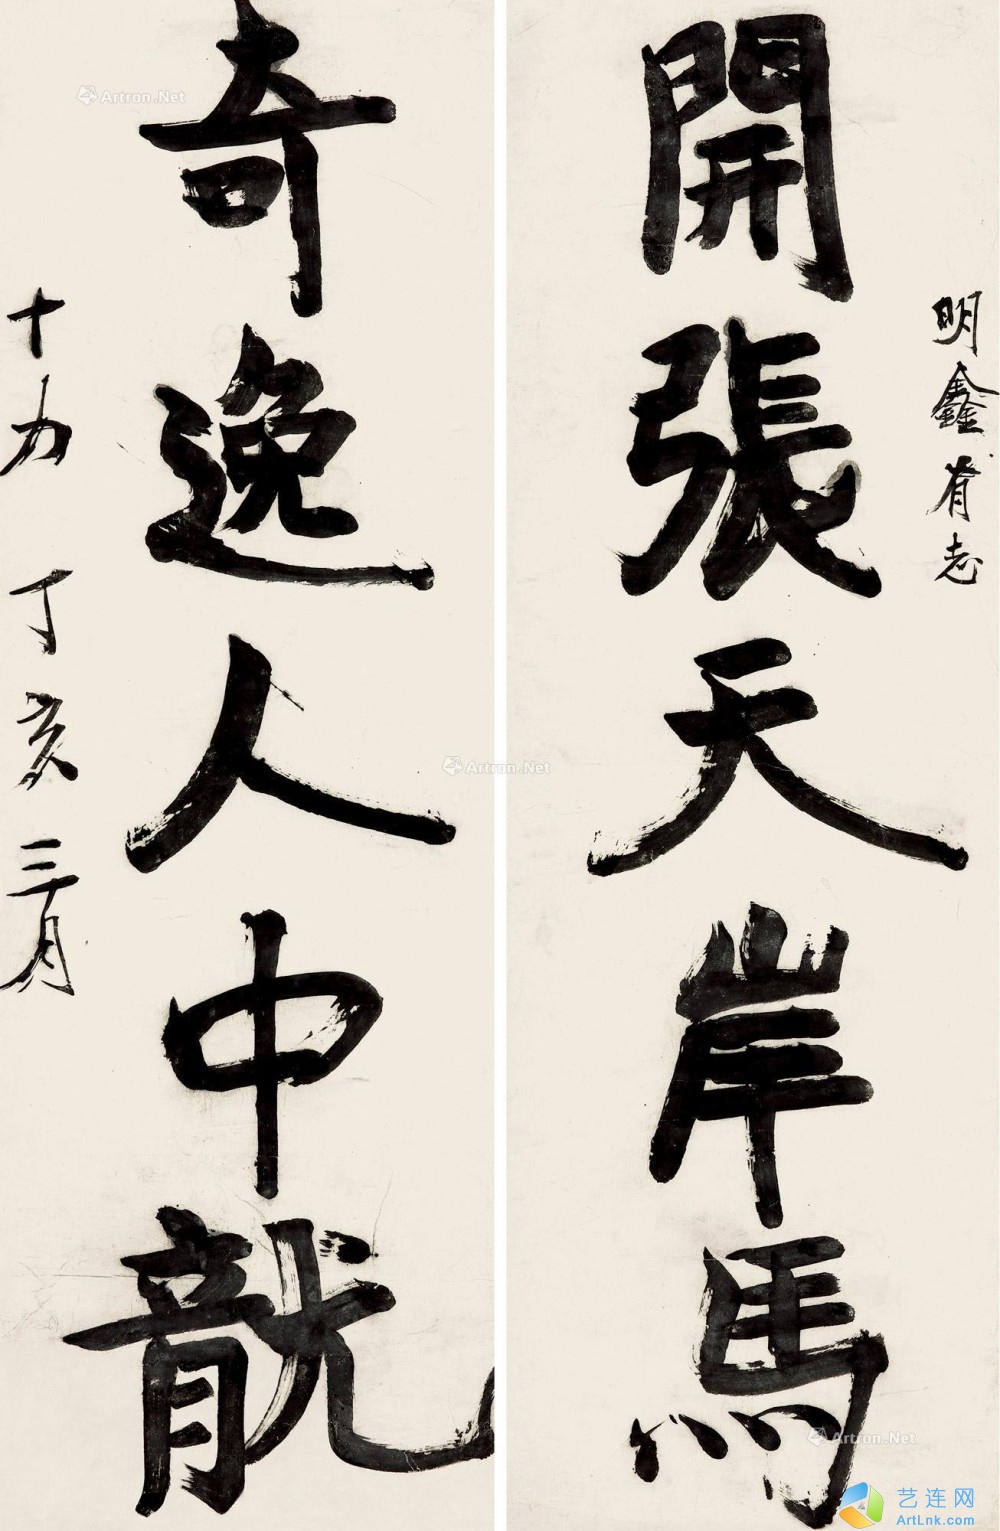 明鑫有志
開張天岸馬
奇逸人中龍
丁亥三月
Artron.Net
Artron.Net
Artron.Net
艺连网
ArtLnk.com